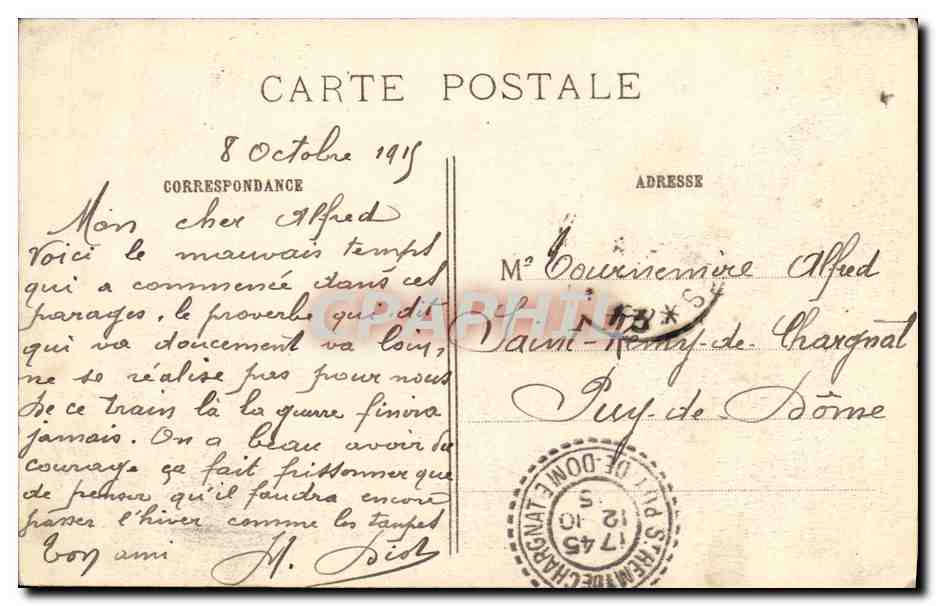 CARTE POSTALE
8 Octobre 1915
CORRESPONDANCE
Mon cher Alfred
Voici le mauvais temps
qui a commencé dans ces
parages, le proverbe qui dit
qui va doucement va loin,
ne se réalise pas pour nous
De ce train là la guerre finira
jamais. On a beau avoir du
courage ça fait frissonner que
de penser qu'il faudra encore
passer l'hiver comme les taupes
ton ami H.
ADRESSE
Mr Tournemire Alfred
Saint-Remy-de-Chargnat
Puy-de-Dôme
ST REMY DE CHARGNAT PUY-DE-DOME
17 45
12 -10
5
CPAPHIL